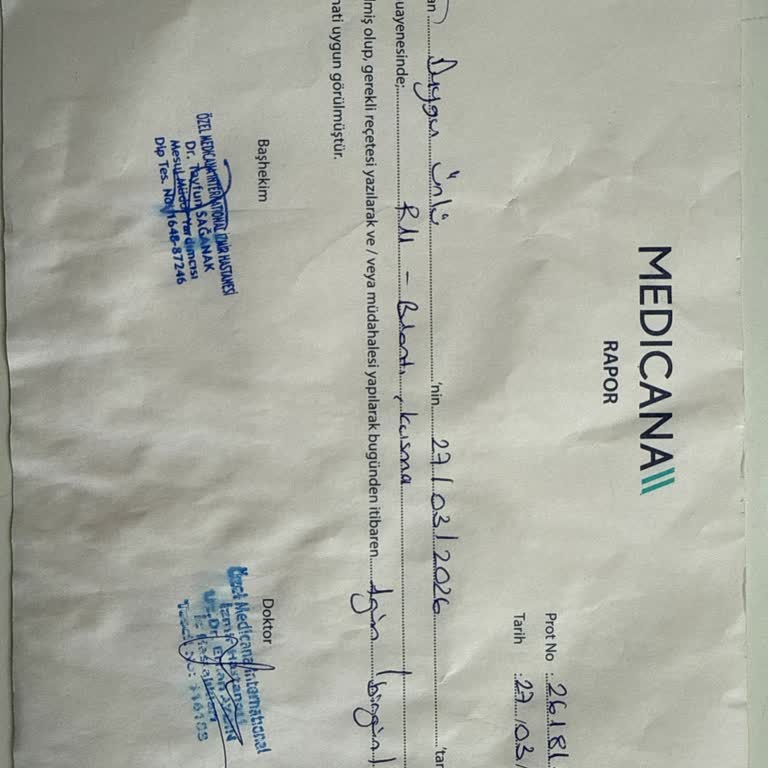 MEDICANA
RAPOR
Prot No : 26181
Tarih : 27.03/
an Duygu Ünlü 'nin 27/03/2026 'tar
uayenesinde; R11 - Bulantı, kusma
lmiş olup, gerekli reçetesi yazılarak ve / veya müdahalesi yapılarak bugünden itibaren 1gün (birgün)
nati uygun görülmüştür.
Başhekim
ÖZEL MEDICANA INTERNATIONAL İZMİR HASTANESİ
Dr. Tayfun SAĞANAK
Mesul Müdür Yardımcısı
Dip Tes. No: 1648-87246
Doktor
Özel Medicana International
İzmir Hastanesi